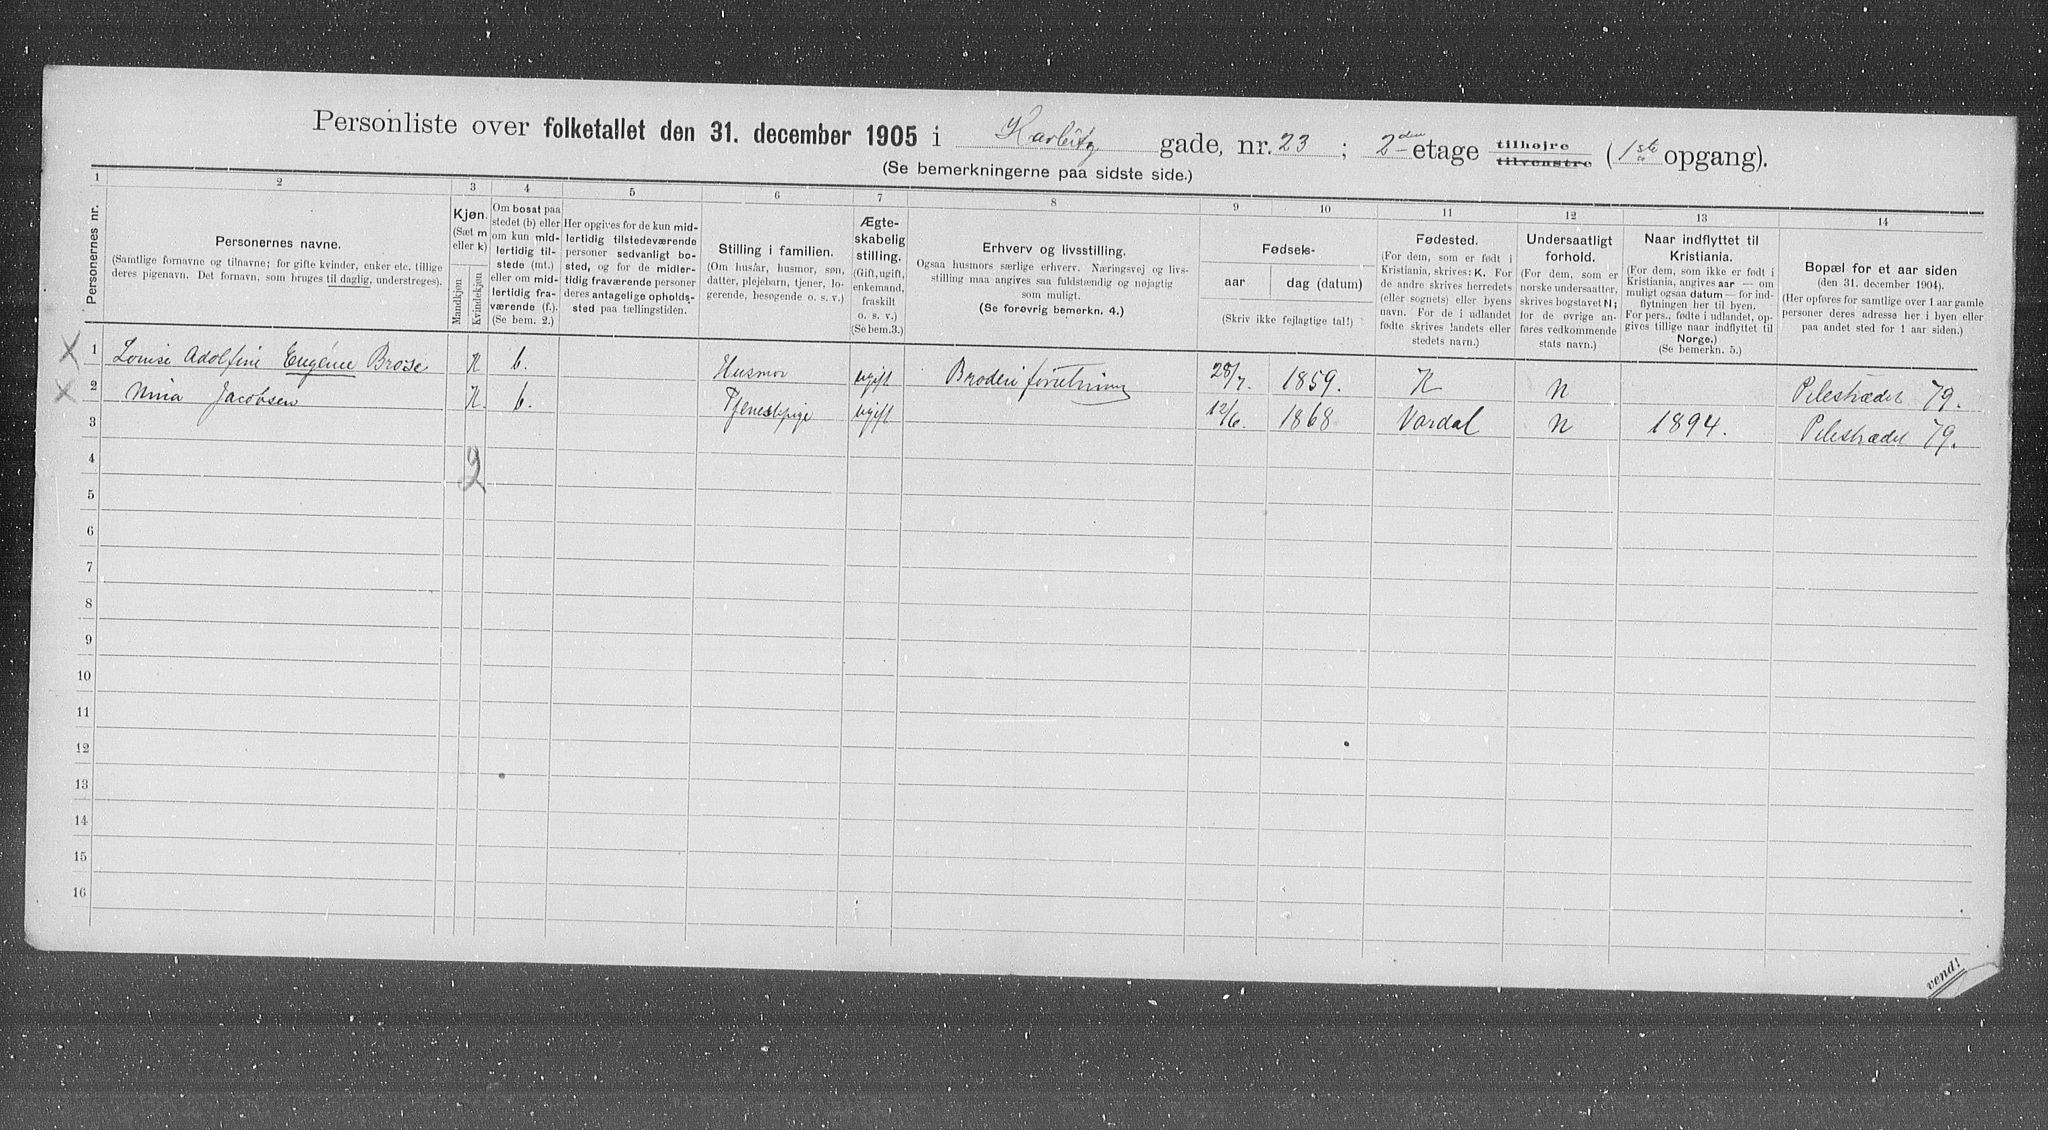 Personliste over folketallet den 31. december 1905 i Harbitz gade, nr. 23 ; 2den etage tilhøjre tilvenstre (1ste opgang).
(Se bemerkningerne paa sidste side.)
1 2 3 4 5 6 7 8 9 10 11 12 13 14
Personernes nr.
Personernes navne.
(Samtlige fornavne og tilnavne; for gifte kvinder, enker etc. tillige
deres pigenavn. Det fornavn, som bruges til daglig, understreges).
Kjøn.
(Sæt m
eller k)
Mandkjøn
Kvindekjøn
Om bosat paa
stedet (b) eller
om kun mid-
lertidig til-
stede (mt.)
eller om mid-
lertidig fra-
værende (f.).
(Se bem. 2.)
Her opgives for de kun mid-
lertidig tilstedeværende
personer sedvanligt bo-
sted, og for de midler-
tidig fraværende personer
deres antagelige opholds-
sted paa tællingstiden.
Stilling i familien.
(Om husfar, husmor, søn,
datter, plejebarn, tjener, lo-
gerende, besøgende o. s. v.)
Ægte-
skabelig
stilling.
(Gift, ugift,
enkemand,
fraskilt
o. s. v.)
(Se bem. 3.)
Erhverv og livsstilling.
Ogsaa husmors særlige erhverv. Næringsvej og livs-
stilling maa angives saa fuldstændig og nøjagtig
som muligt.
(Se forøvrig bemerkn. 4.)
Fødsels-
aar
dag (datum)
(Skriv ikke fejlagtige tal!)
Fødested.
(For dem, som er født i
Kristiania, skrives: K. For
de andre skrives herredets
(eller sognets) eller byens
navn. For de i udlandet
fødte skrives landets eller
stedets navn.)
Undersaatligt
forhold.
(For dem, som er
norske undersaatter,
skrives bogstavet N;
for de øvrige an-
føres vedkommende
stats navn.)
Naar indflyttet til
Kristiania.
(For dem, som ikke er født i
Kristiania, angives aar — om
muligt ogsaa datum — for ind-
flytningen her til byen.
For pers., fødte i udlandet, op-
gives tillige naar indflyttet til
Norge.)
(Se bemerkn. 5.)
Bopæl for et aar siden
(den 31. december 1904).
(Her opføres for samtlige over 1 aar gamle
personer deres adresse her i byen eller
paa andet sted for 1 aar siden.)
X 1 Louise Adolfine Eugénie Brose K b. Husmor ugift Broderiforretning 28/7. 1859. K N Pilestrædet 79.
X 2 Nina Jacobsen K. b. Tjenestpige ugift 12/6. 1868 Vardal N 1894. Pilestrædet 79.
3
4 2
5
6
7
8
9
10
11
12
13
14
15
16
vend!